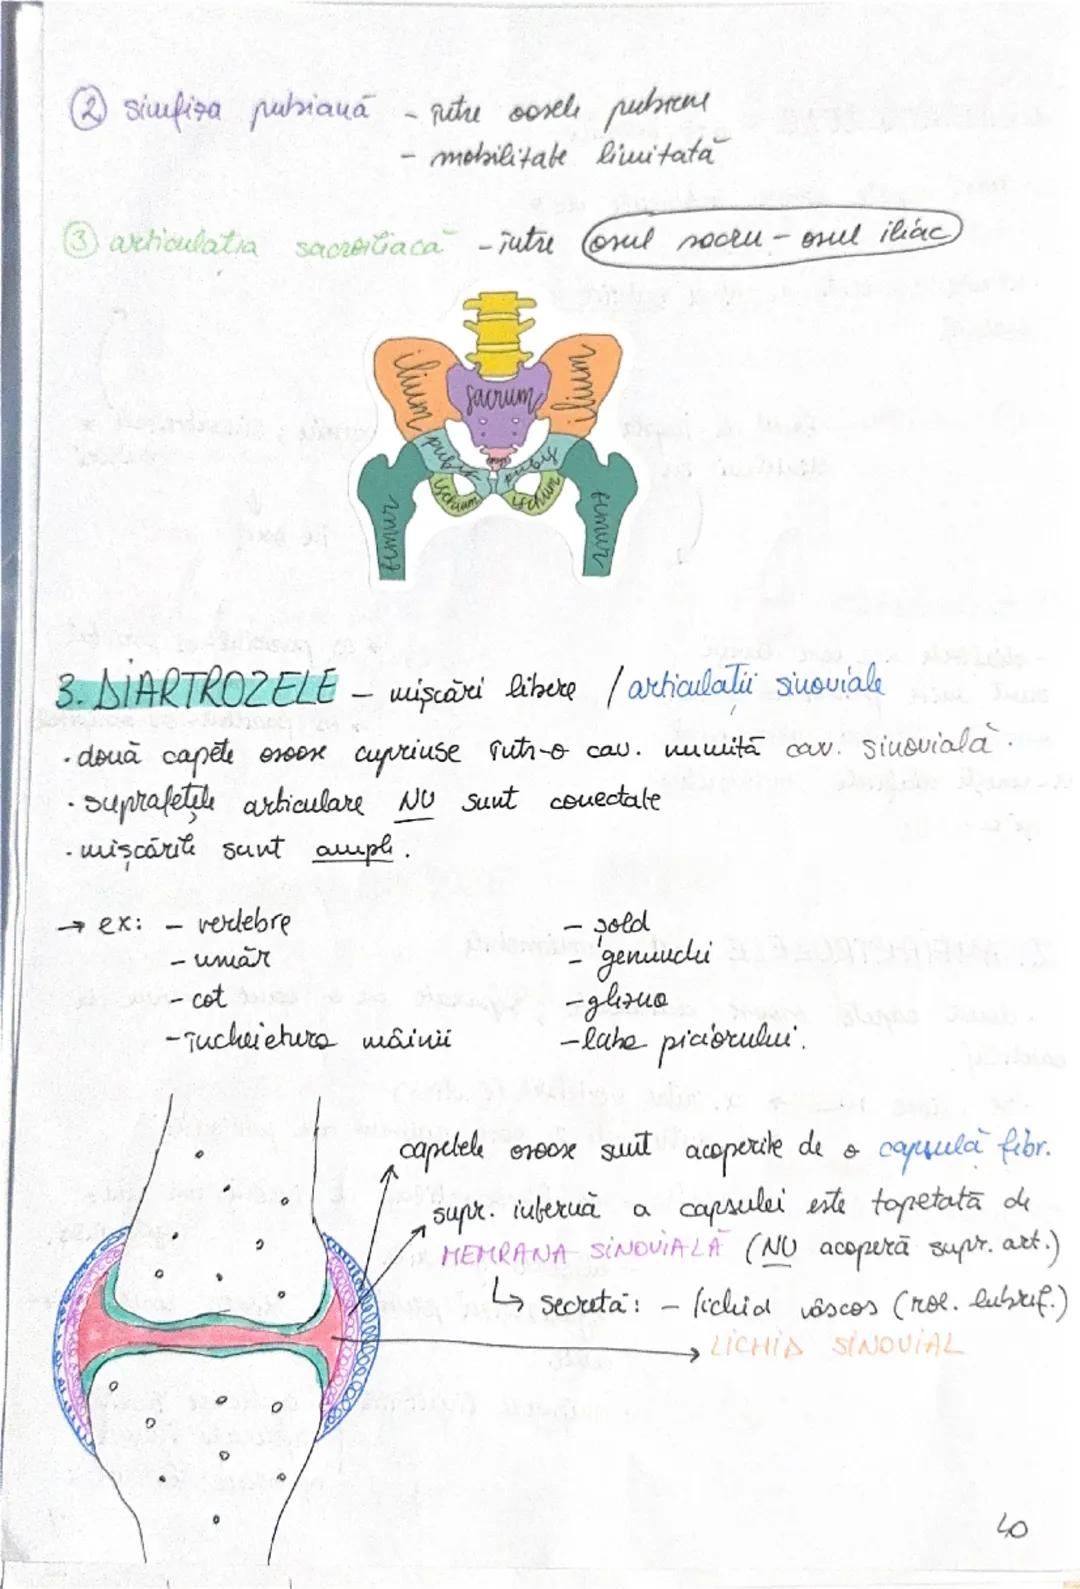 ② simfiza pubiană - între oasele pubiene
- mobilitate limitată
③ articulatia sacroiliacă - între osul sacru - osul iliac
ilium
sacrum
ilium
pubis
pubis
ischium
ischium
femur
femur
3. DIARTROZELE - mișcări libere / articulații sinoviale
· două capete osoase cuprinse într-o cav. numită cav. sinovială.
· suprafețele articulare NU sunt conectate
· mișcările sunt ample.
→ ex: - vertebre
- umăr
- cot
- încheietura mâinii
- șold
- genunchi
- glezna
- laba piciorului.
capetele osoase sunt acoperite de o capsulă fibr.
supr. internă a capsulei este tapetată de
MEMRANA SINOVIALĂ (NU acoperă supr. art.)
↳ secretă: - lichid vâscos (rol. lubrif.)
LICHID SINOVIAL
40